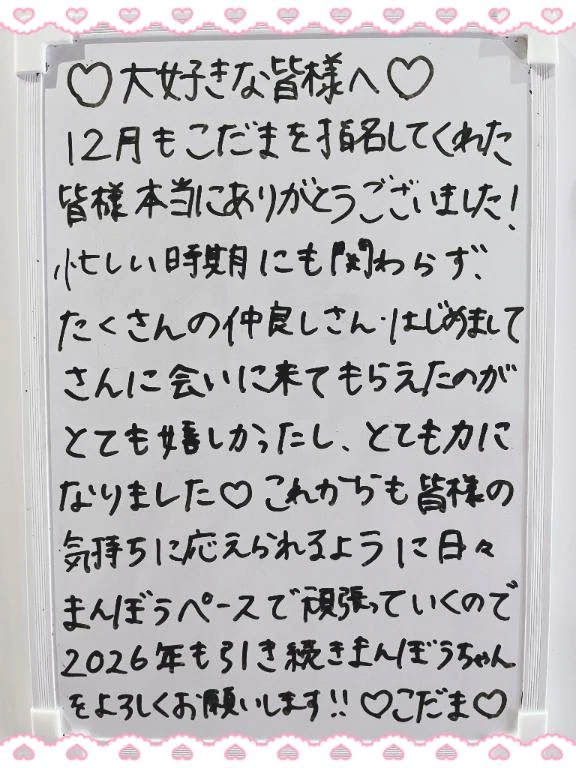 ♡大好きな皆様へ♡
12月もこだまを指名してくれた
皆様本当にありがとうございました!
忙しい時期にも関わらず、
たくさんの仲良しさん・はじめまして
さんに会いに来てもらえたのが
とても嬉しかったし、とても力に
なりました♡これからも皆様の
気持ちに応えられるように日々
まんぼうペースで頑張っていくので
2026年も引き続きまんぼうちゃん
をよろしくお願いします!!♡こだま♡